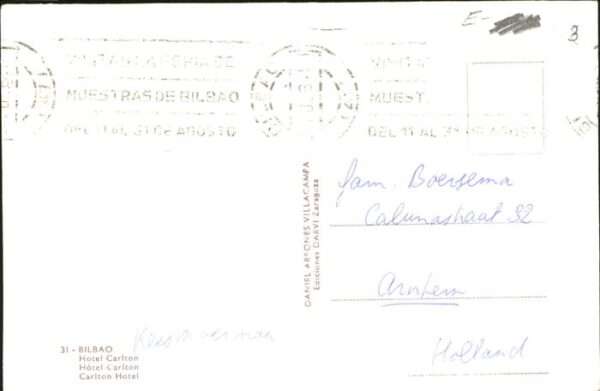 E-
3
VISITAD LA FERIA DE
MUESTRAS DE BILBAO
DEL 11 AL 31 DE AGOSTO
MUEST
DEL 11 AL 31 DE AGOSTO
fam. Boersema
Calunastraat 32
Arnhem
Holland
DANIEL ARBONES VILLACAMPA
Ediciones DARVI Zaragoza
31 - BILBAO
Hotel Carlton
Hôtel Carlton
Carlton Hotel